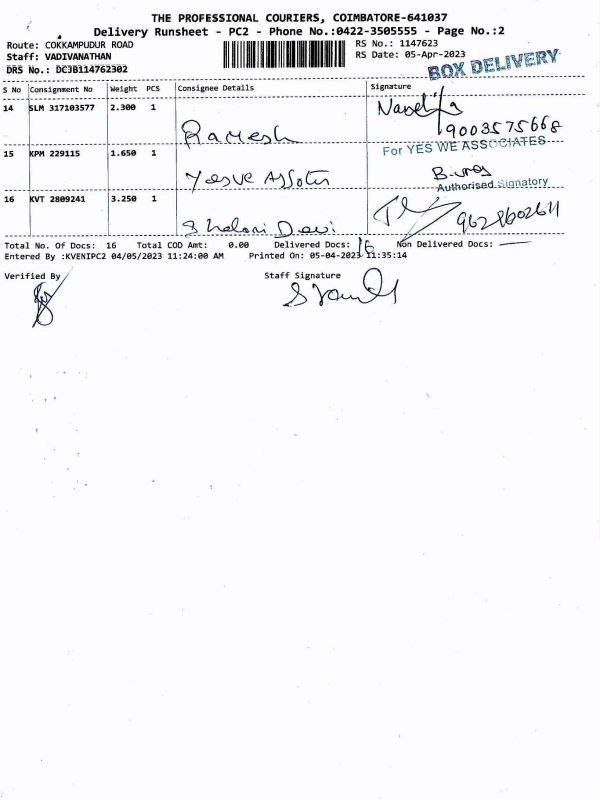 THE PROFESSIONAL COURIERS, COIMBATORE-641037
Delivery Runsheet - PC2 - Phone No.:0422-3505555 - Page No.:2
Route: COKKAMPUDUR ROAD
RS No.: 1147623
Staff: VADIVANATHAN
RS Date: 05-Apr-2023
DRS No.: DCJB114762302
BOX DELIVERY
S No Consignment No Weight PCS Consignee Details Signature
14 SLM 317103577 2.300 1
Ramesh
9003575668
15 KPM 229115 1.650 1
For YES WE ASSOCIATES
Authorised Signatory
16 KVT 2809241 3.250 1
Shalani Devi
9628602611
Total No. Of Docs: 16 Total COD Amt: 0.00 Delivered Docs: 16 Non Delivered Docs:
Entered By :KVENIPC2 04/05/2023 11:24:00 AM Printed On: 05-04-2023 11:35:14
Verified By Staff Signature